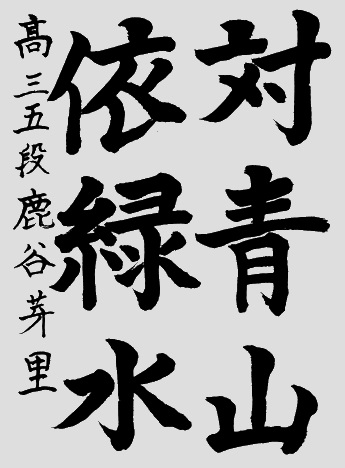 対青山
依緑水
高三五段鹿谷芽里